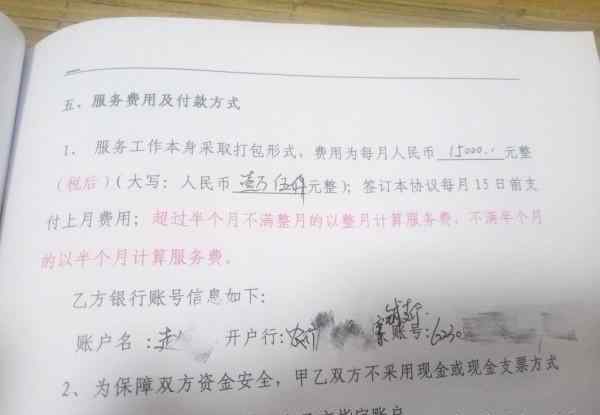 五、服务费用及付款方式
1、 服务工作本身采取打包形式,费用为每月人民币 15000.. 元整
(税后)(大写:人民币 壹万伍仟元整);签订本协议每月15日前支
付上月费用;超过半个月不满整月的以整月计算服务费,不满半个月
的以半个月计算服务费。
乙方银行账号信息如下:
账户名 :赵 开户行:农行 账号:6230
2、为保障双方资金安全,甲乙双方不采用现金或现金支票方式